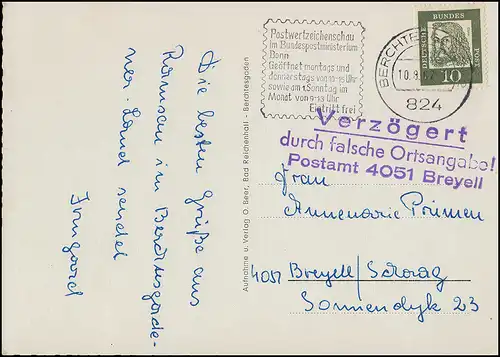 Die besten Grüße aus
Ramsau im Berchtesgade-
ner-Land sendet
Irmgard
Aufnahme u. Verlag O. Beer, Bad Reichenhall - Berchtesgaden
Postwertzeichenschau
im Bundespostministerium
Bonn
Geöffnet montags und
donnerstags von 10-15 Uhr
sowie am 1. Sonntag im
Monat von 9-13 Uhr
Eintritt frei
824
DEUTSCHE BUNDES POST
10
Verzögert
durch falsche Ortsangabe!
Postamt 4051 Breyell
Frau
Annemarie
4051 Breyell/Schaag
Sonnendyk 23